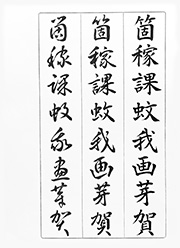 箇稼課蚊我画芽賀
箇稼課蚊我画芽賀
箇稼課蚊我畫芽賀